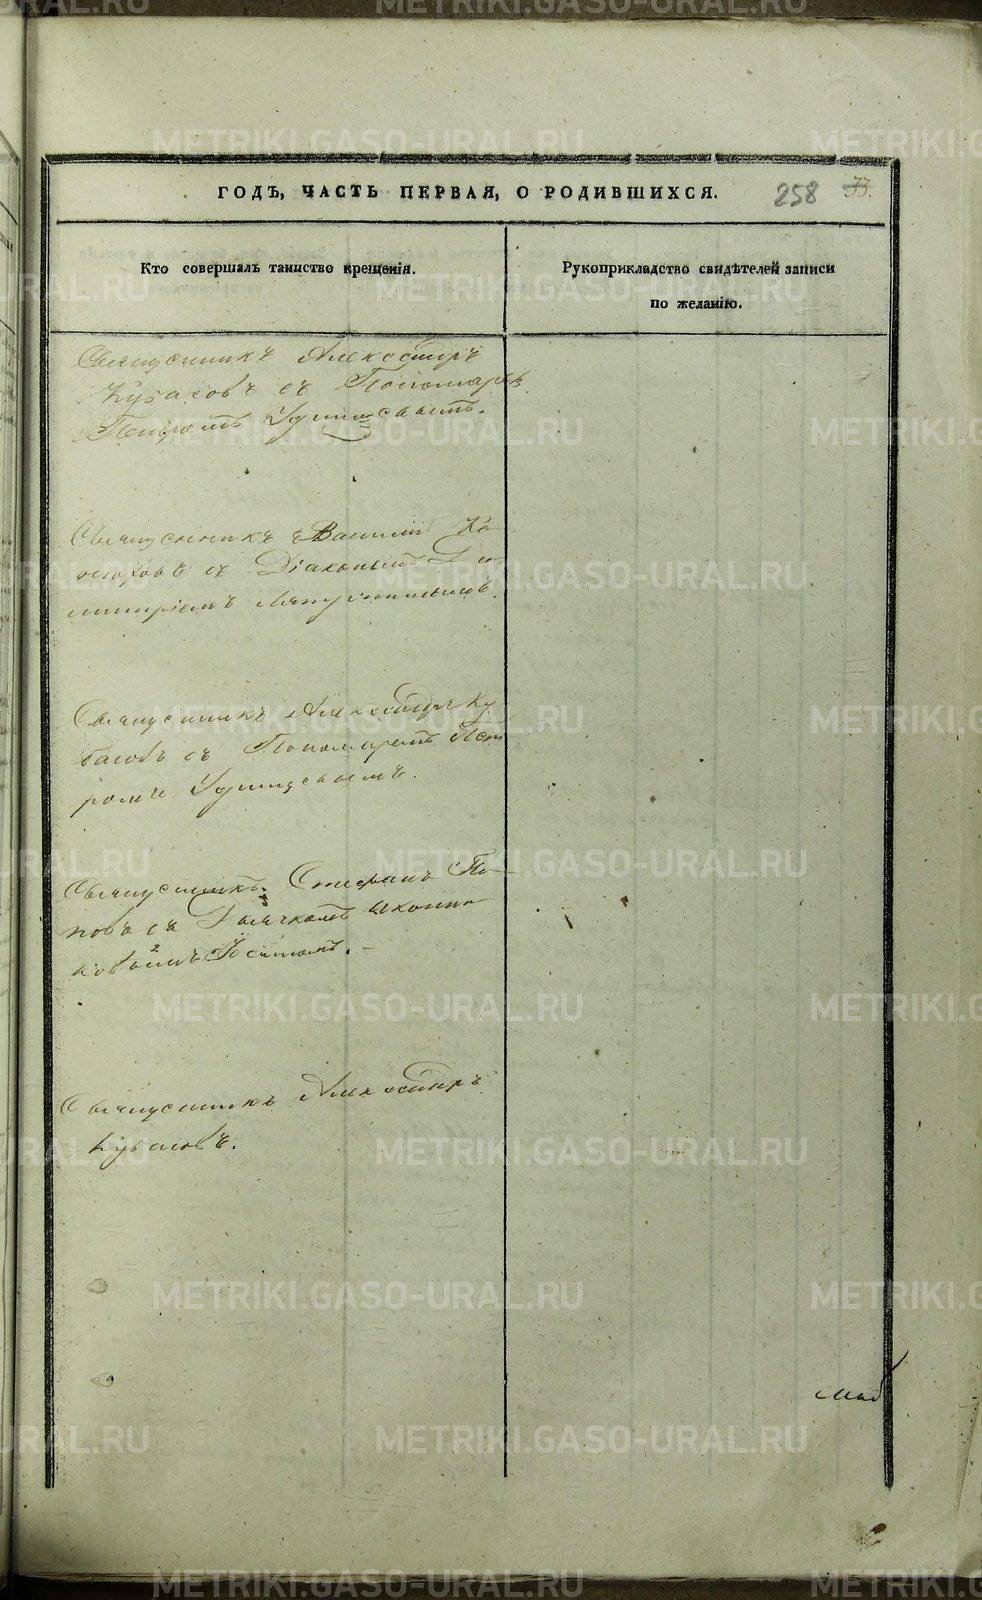 ГОДЪ, ЧАСТЬ ПЕРВАЯ, О РОДИВШИХСЯ.
258 77.
Кто совершалъ таинство крещенія.
Рукоприкладство свидѣтелей записи
по желанію.
Священникъ Александръ
Кубасовъ съ Пономарем
Петромъ
Священникъ Василій Ко
съ Діакономъ Ди
митріемъ
Священникъ Александръ Ку
басовъ съ Пономаремъ Пет
ромъ
Священникъ Стефанъ По
повъ съ Дьячкомъ Иконни
ковымъ
Священникъ Александръ
Кубасовъ.
METRIKI.GASO-URAL.RU